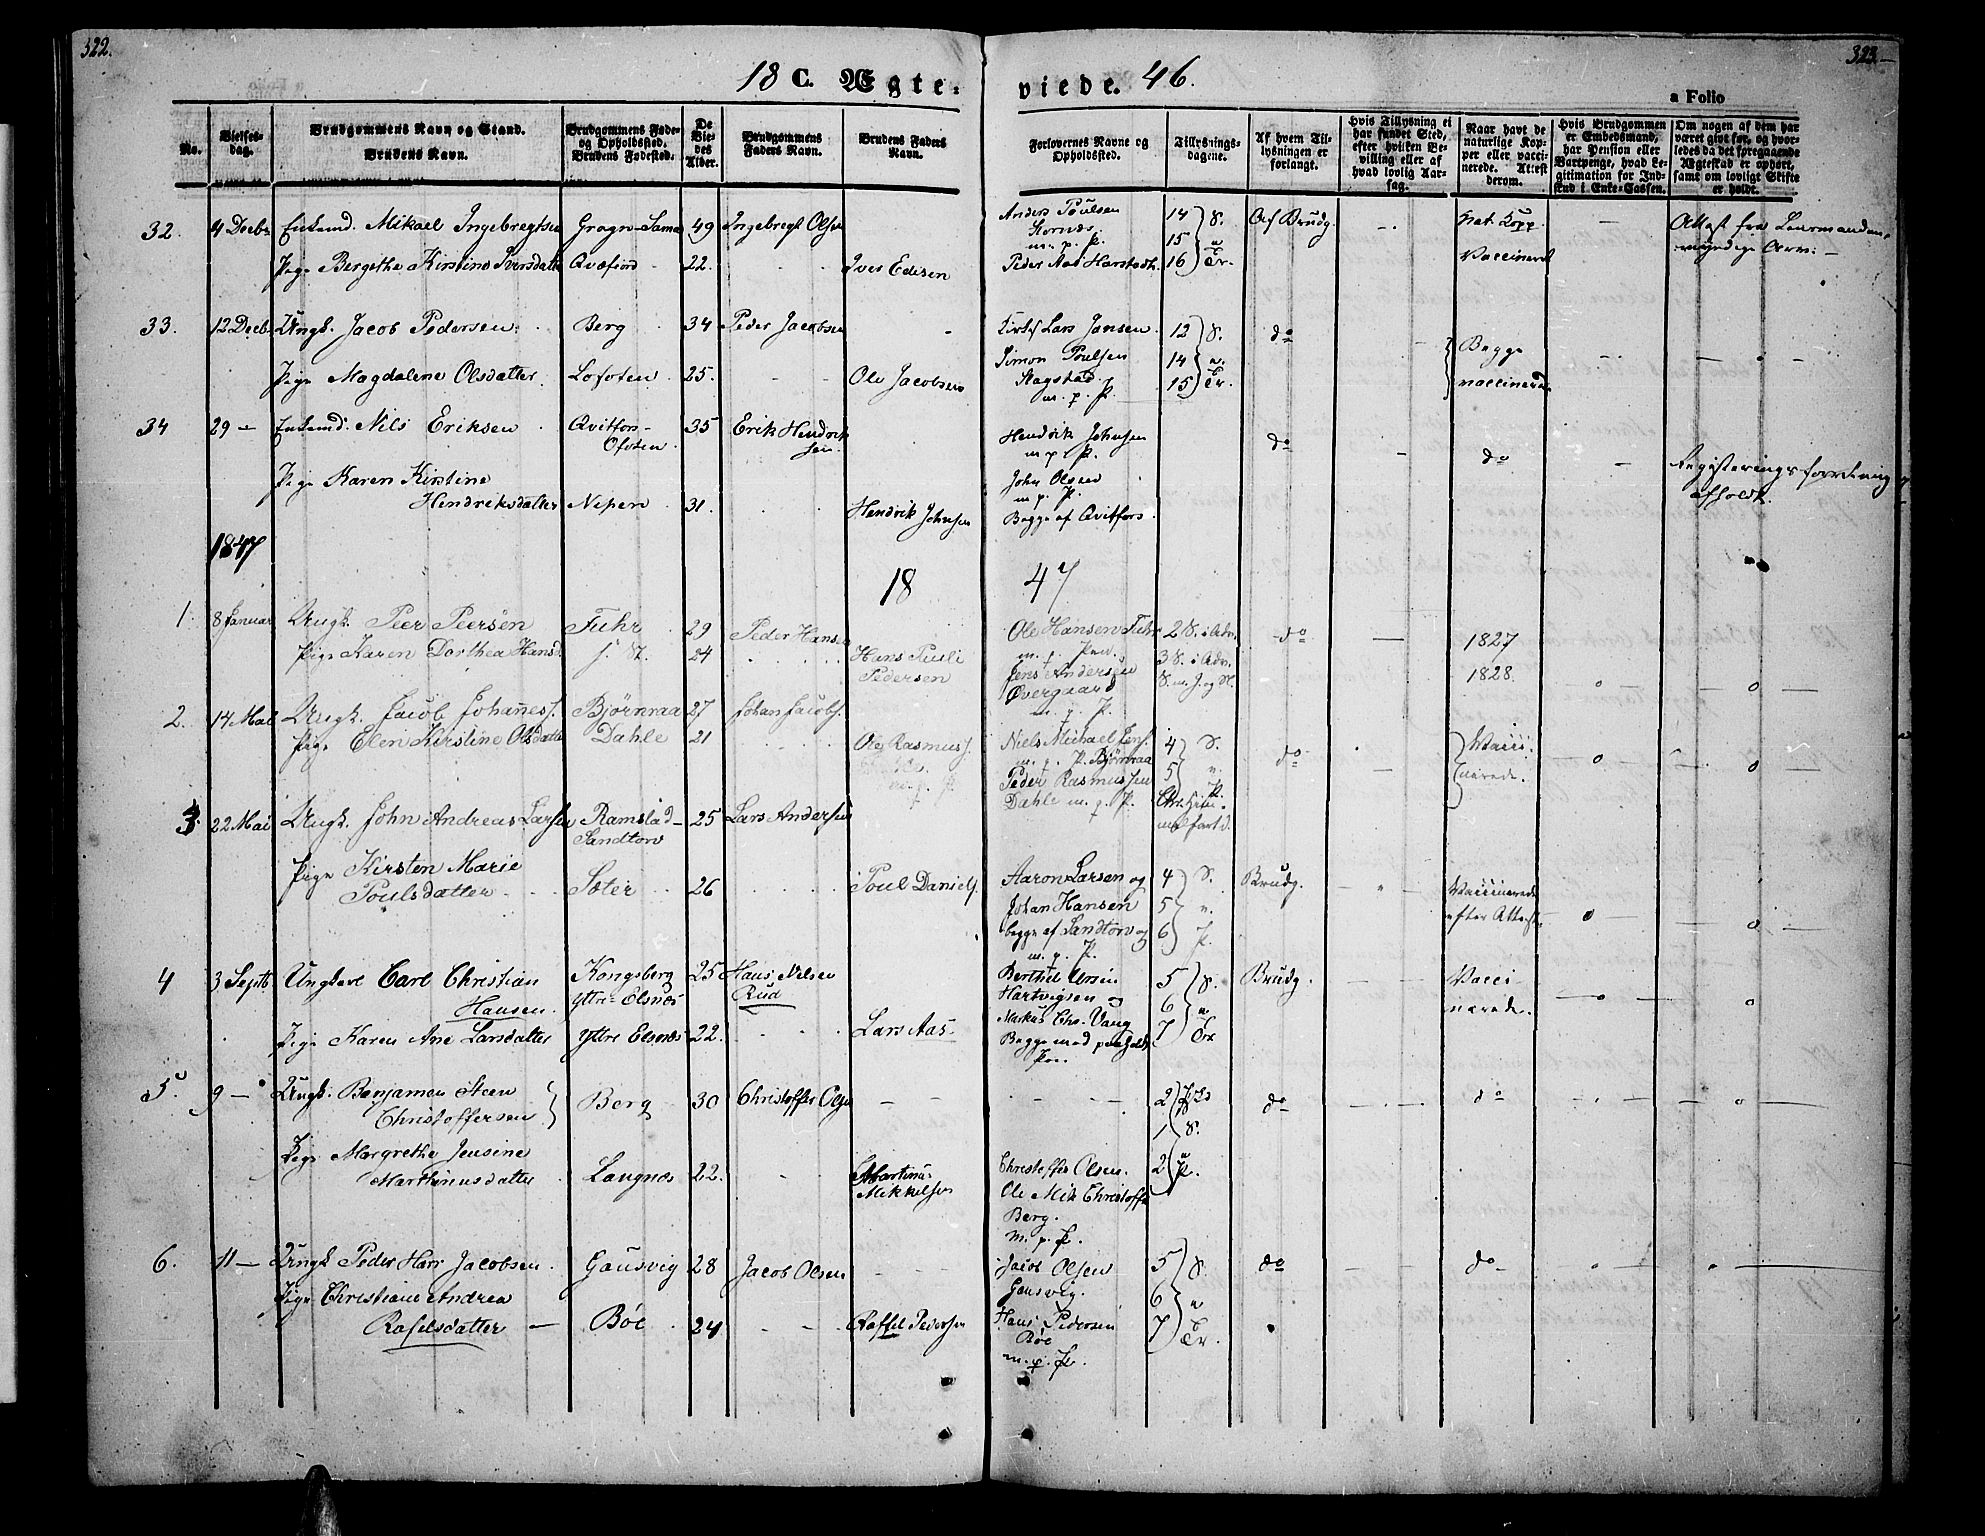 322.
323.
18 C. Ægte-
viede. 46.
a Folio
No.
Vielses-
dag.
Brudgommens Navn og Stand.
Brudens Navn.
Brudgommens Føde-
og Opholdssted.
Brudens Fødested.
De
Vie-
des
Alder.
Brudgommens
Faders Navn.
Brudens Faders
Navn.
Forlovernes Navne og
Opholdssted.
Tillysnings-
dagene.
Af hvem Til-
lysningen er
forlangt.
Hvis Tillysning ei
har fundet Sted,
efter hvilken Be-
villing eller af
hvad lovlig Aar-
sag.
Naar havt de
naturlige Kop-
per eller vacci-
nerede. Attest
derom.
Hvis Brudgommen
er Embedsmand,
har Pension eller
Vartpenge, hvad Le-
gitimation for Ind-
skud i Enke-Cassen.
Om nogen af dem har
været givt før, og hvor-
ledes da det foregaaende
Ægteskab er ophørt,
samt om lovligt Skifte
er holdt.
32. 4 Decbr. Enkemd. Mikael Ingebregtsen 49 Ingebregt Olsen
Pige Bergithe Kirstine Iversdatter Qvæfiord 22. Iver Edisen
Anders Poulsen
m. p. P.
Peder Aas Harstadh.
14 S.
15 e.
16 Tr.
Af Brudg.
Nat. Kopp.
Vaccineret
33. 12 Decbr. Ungk. Jacob Pedersen Berg 34 Peder Jacobsen
Pige Magdalene Olsdatter Lofoten 25. Ole Jacobsen
Lars Jansen
Simon Poulsen
m. p. P.
12 S.
14 e.
15 Tr.
do
Begge
vaccinerede
34 29 — Enkemd. Nils Eriksen Qvitfors- Ofoten 35 Erik Hendrik
sen.
Pige Karen Kirstine
Hendriksdatter Nipen 31. Hendrik Johnsen
Hendrik Johnsen
m p. P.
John Olsen
m. p. P.
Begge af Qvitfors.
do
do
Registeringsforretning
afholdt.
1847
18 47
1. 8 Januar Ungk. Peer Peersen Fuhr 29 Peder Hansen
Pige Karen Dorthea Hansd. 24 Hans Pauli
Pedersen
Ole Hansen Fuhr
Jens Andersen
Overgaard
m. p. P.
2 S. i Adv.
3 S. i Adv.
do
1827
1828.
2. 14 Mai Ungk. Jacob Johaness. Bjørnraa 27 Johan Jacobs.
Pige Elen Kirstine Olsdatter Dahle 21 Ole Rasmuss.
Niels Michael Jens.
m. p. P. Bjørnraa
Peder Rasmussen
Dahle m. p. P.
4 S.
5 e. P.
Chr. Him-
melfartd.
do
Vacci
nerede.
3. 22 Mai Ungk. John Andreas Larsen Ramstad-
Sandtorv 25 Lars Andersen
Pige Kirsten Marie
Poulsdatter Sæter 26 Poul Daniels.
Aaron Larsen og
Johan Hansen
begge af Sandtorv og
m. p. P.
4 S.
5 e.
6 P.
Brudg.
Vaccinerede
efter Attest.
4 3 Septb. Ungkarl Carl Christian
Hansen. Kongsberg
Yttre Elsnæs 25 Hans Nilsen
Rud
Pige Karen Ane Larsdatter Yttre Elsnæs 22. Lars Aas
Berthel Ursin
Hartvigsen og
Markus Chr. Vang
Begge med paaholdt
Pen.
5 S.
6 e
7 Tr
Brudg.
Vacci
nerede.
5. 9 — Ungk. Benjamen Steen
Christoffersen Berg 30 Christoffer Olsen
Pige Margrethe Jensine
Marthinusdatter Langnæs 22. Martinus
Mikkelsen
Christoffer Olsen.
Ole Mik Christoffe
Berg.
m. p. P.
2
1 S.
2 P.
do
do
6. 11 — Ungk Peder Hans Jacobsen Gausvig 28 Jacob Olsen
Pige Christiane Andrea
Rafelsdatter — Bøe 24 Raffel Pedersen
Jacob Olsen
Gausvig.
Hans Pedersen
Bøe
m. p. P.
5 S.
6 e
7 Tr.
do
do